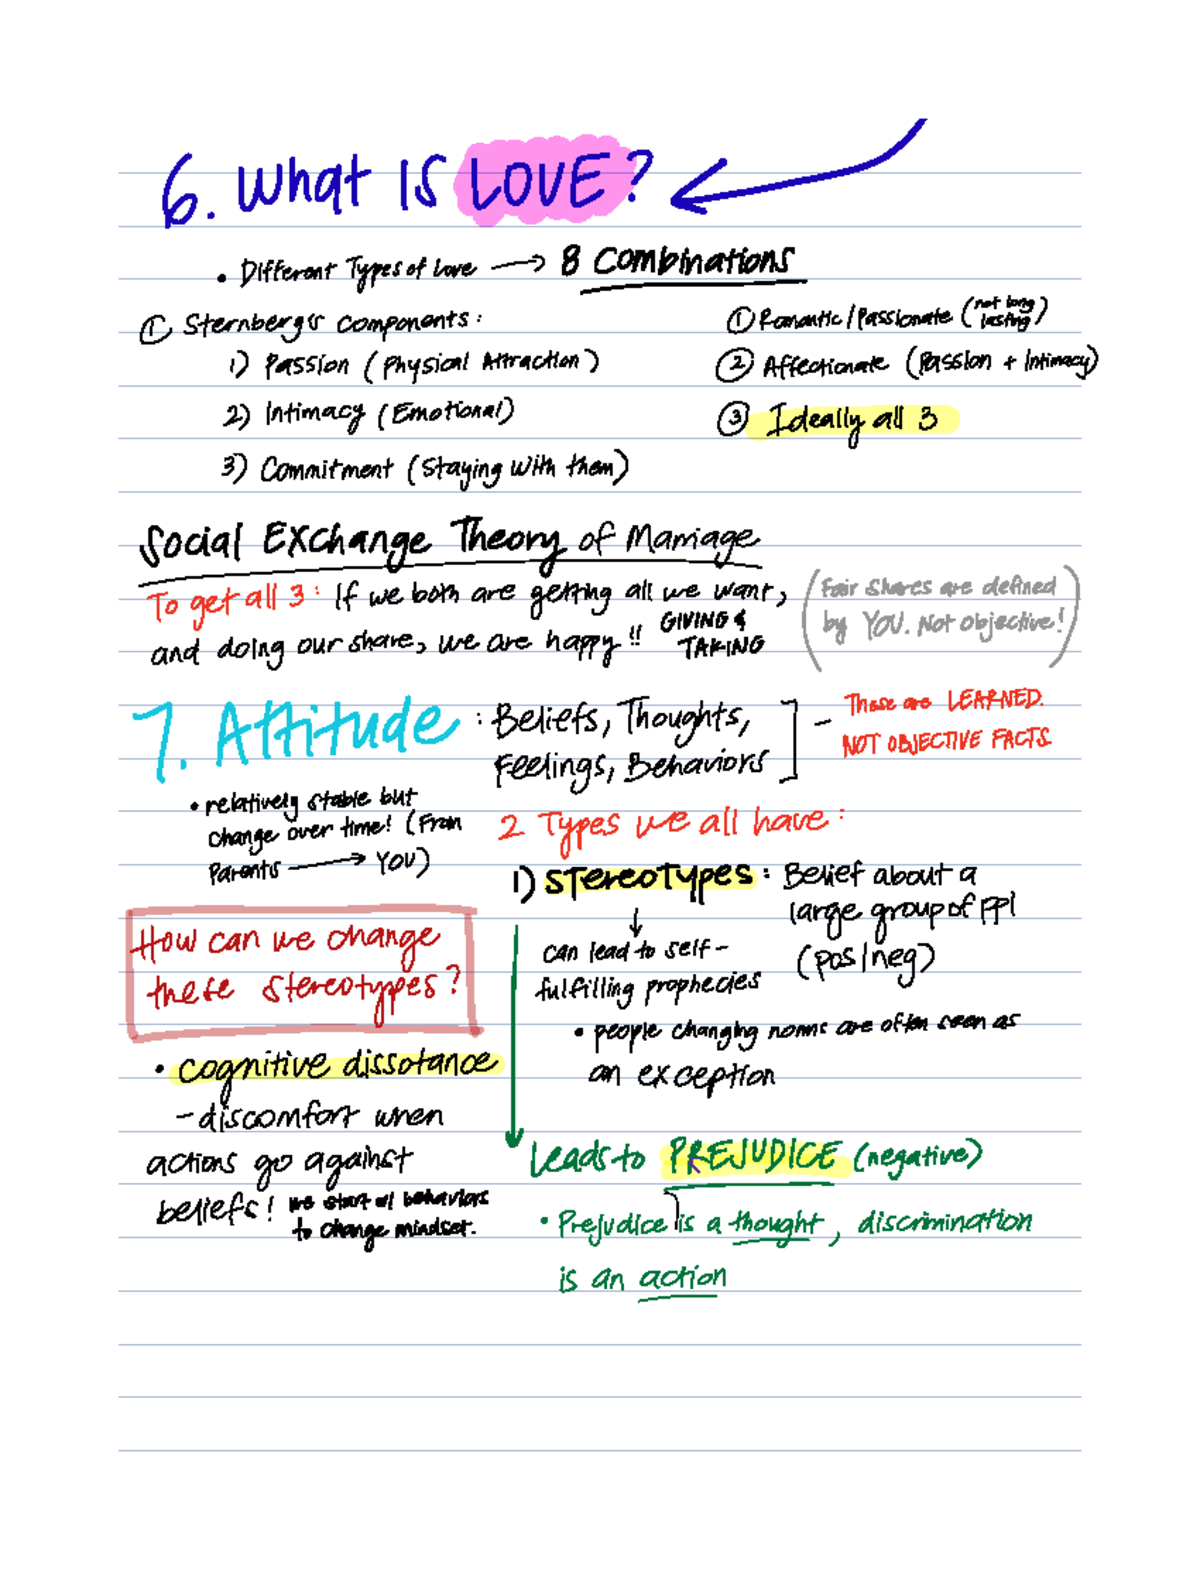 6. What IS LOVE?
• Different Types of Love → 8 Combinations
① Sternberg's Components:
1) Passion (Physical Attraction)
2) Intimacy (Emotional)
3) Commitment (Staying with them)
① Romantic/Passionate (not long lasting)
② Affectionate (Passion + Intimacy)
③ Ideally all 3
Social Exchange Theory of Marriage
To get all 3: If we both are getting all we want,
and doing our share, we are happy!! GIVING &
TAKING
(Fair Shares are defined
by YOU. Not objective!)
7. Attitude: Beliefs, Thoughts,
Feelings, Behaviors] –
These are LEARNED.
NOT OBJECTIVE FACTS.
• relatively stable but
change over time! (From
Parents → YOU)
2 Types we all have:
1) Stereotypes: Belief about a
large group of ppl
(pos/neg)
↓
can lead to self-
fulfilling prophecies
• people changing norms are often seen as
an exception
How can we change
these stereotypes?
• cognitive dissotance
– discomfort when
actions go against
beliefs! we start w/ behaviors
to change mindset.
Leads to PREJUDICE (negative)
• Prejudice is a thought, discrimination
is an action